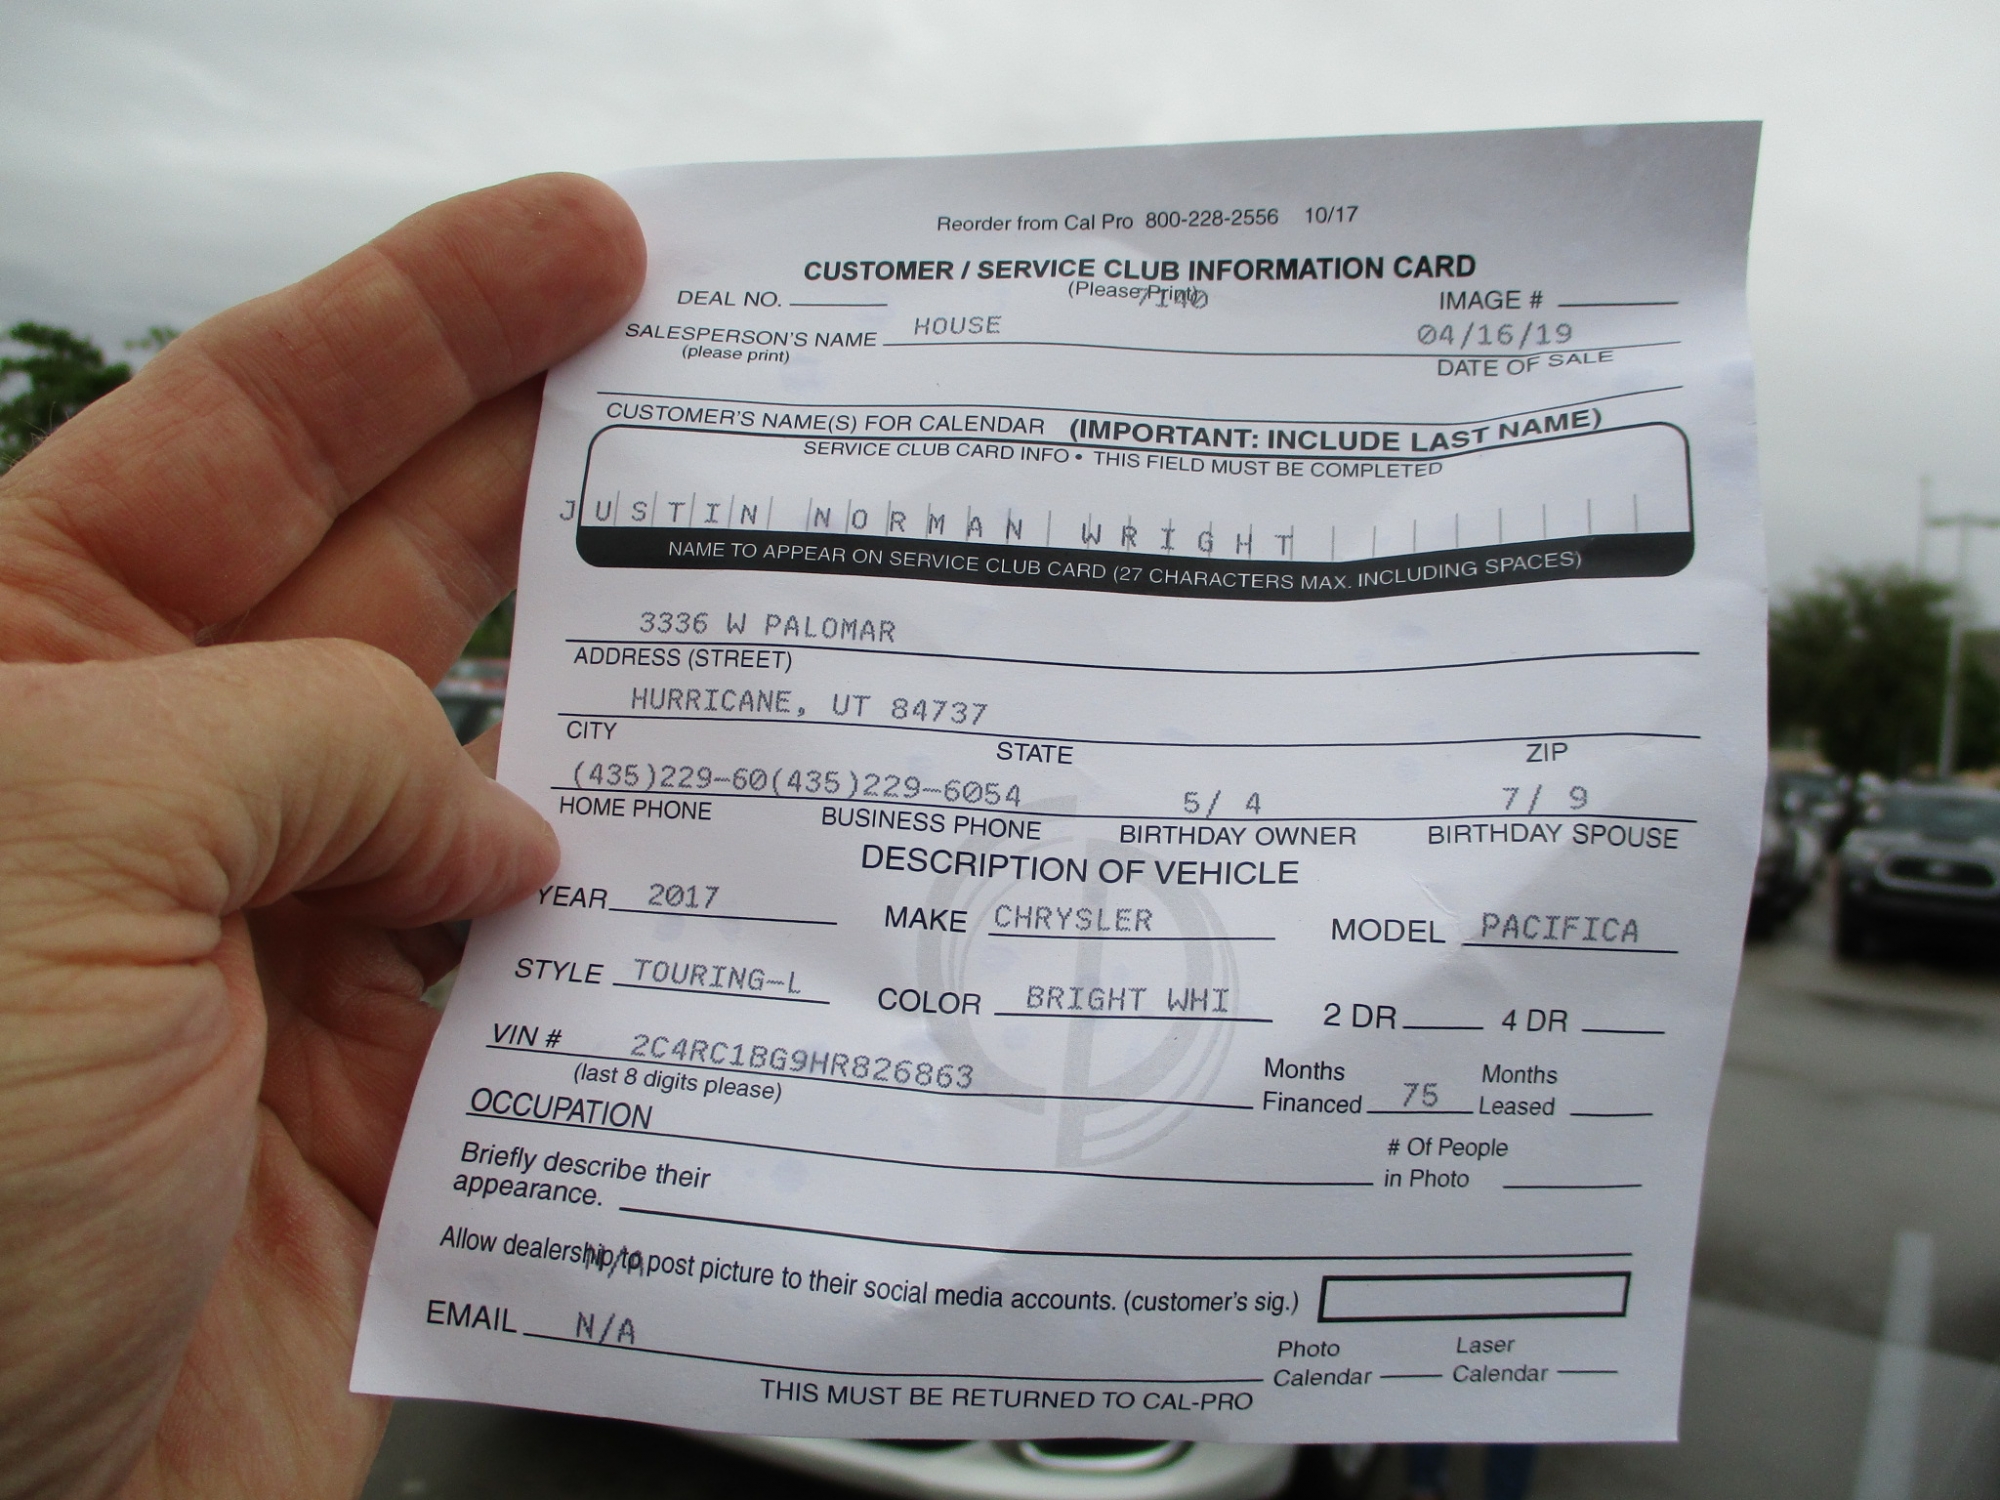 Reorder from Cal Pro 800-228-2556 10/17
CUSTOMER / SERVICE CLUB INFORMATION CARD
(Please Print)
7140
DEAL NO. IMAGE #
SALESPERSON'S NAME HOUSE 04/16/19
(please print) DATE OF SALE
CUSTOMER'S NAME(S) FOR CALENDAR (IMPORTANT: INCLUDE LAST NAME)
SERVICE CLUB CARD INFO • THIS FIELD MUST BE COMPLETED
JUSTIN NORMAN WRIGHT
NAME TO APPEAR ON SERVICE CLUB CARD (27 CHARACTERS MAX. INCLUDING SPACES)
3336 W PALOMAR
ADDRESS (STREET)
HURRICANE, UT 84737
CITY STATE ZIP
(435)229-60(435)229-6054 5/ 4 7/ 9
HOME PHONE BUSINESS PHONE BIRTHDAY OWNER BIRTHDAY SPOUSE
DESCRIPTION OF VEHICLE
YEAR 2017 MAKE CHRYSLER MODEL PACIFICA
STYLE TOURING-L COLOR BRIGHT WHI 2 DR 4 DR
VIN # 2C4RC1BG9HR826863
(last 8 digits please)
Months Financed 75 Months Leased
OCCUPATION
# Of People in Photo
Briefly describe their
appearance.
N/A
Allow dealership to post picture to their social media accounts. (customer's sig.)
EMAIL N/A
Photo Calendar Laser Calendar
THIS MUST BE RETURNED TO CAL-PRO